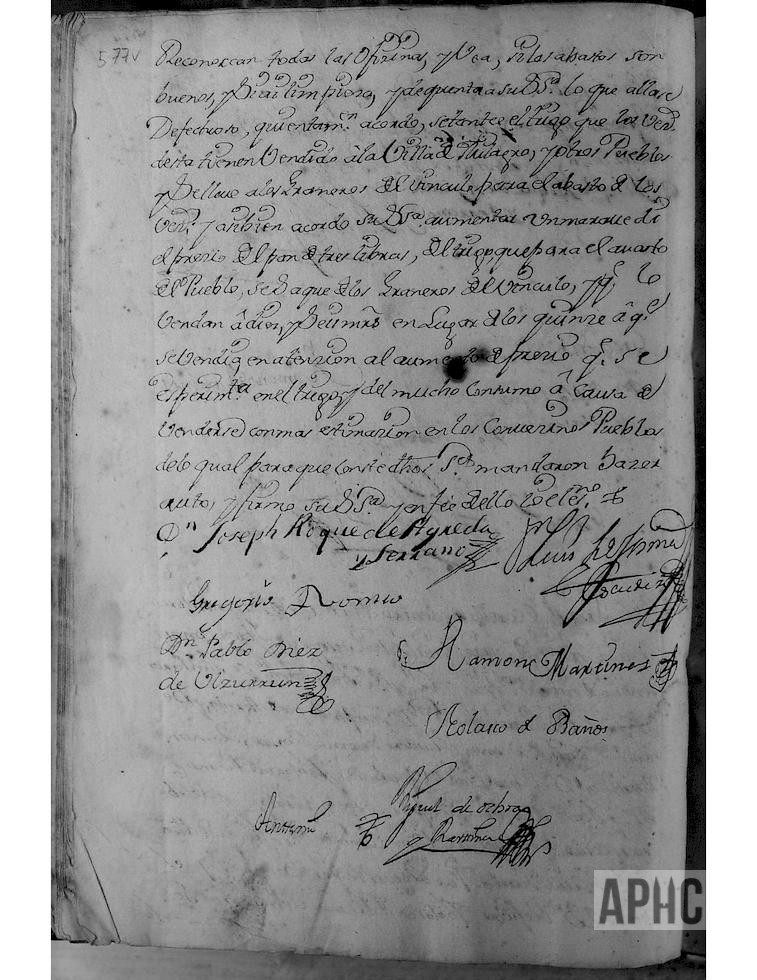 577v
Reconozcan todas las oficinas, y Vea, si los abastos son
buenos, y Pesar limpiero, y de quenta a su Sª. lo que allase
Defectuoso, qui entamⁿ. acordo, se tantee el trigo que los Vecº.
desta tienen Vendido à la Villa de Milagro, y otros Pueblos
y se lleue a los Graneros del Vinculo para el abasto de los
Vecº. y assibien acordo su Sª. aumentar Un marauedi
el precio del pan de tres libras, del trigo que para el auasto
del Pueblo, se saque de los Graneros del Vinculo, y qᵉ. lo
Vendan â diez, y seis mrs en Lugar de los quinze â qᵉ
se Vendia en atenzion al aumento de prezio qᵉ. se
esperimᵗᵃ en el trigo, y del mucho Consumo â Causa de
Venderse con mas estimazion en los Conuezinos Pueblos
de lo qual para que conste dhos Sᵉˢ mandaron hazer
auto, y firmo su Sª. y en fee dello yo el essº.
Dⁿ Joseph Roque de Agreda
y Serrano
Luis Ledesma
Gregorio Romeo
Dⁿ. Pablo Diez
de Ulzurrun
Ramon Martines
Nolasco d Baños
Antemi
Miguel de ochoa
y Ramirez
APHC